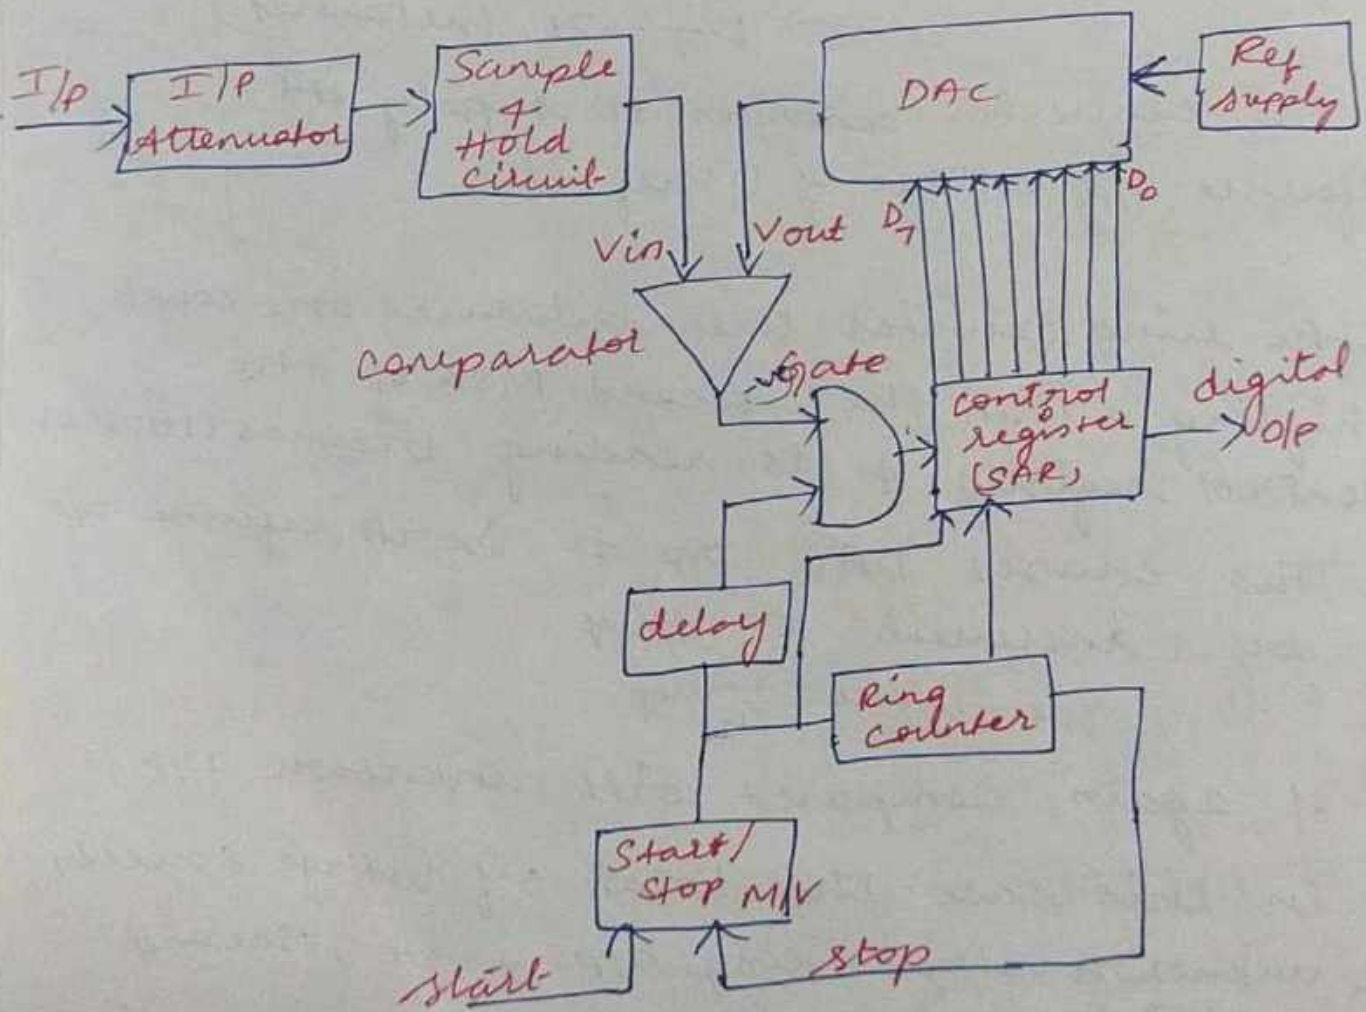 I/P
I/P
Attenuator
Sample
&
Hold
Circuit
DAC
Ref
supply
D7
D0
Vin
Vout
comparator
Gate
control
register
(SAR)
digital
O/P
delay
Ring
counter
Start/
Stop M/V
start
stop